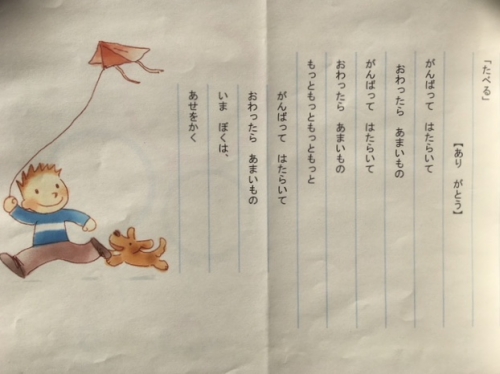 「たべる」
【あり　がとう】
がんばって　はたらいて
おわったら　あまいもの
がんばって　はたらいて
おわったら　あまいもの
もっともっともっともっと
がんばって　はたらいて
おわったら　あまいもの
いま　ぼくは、
あせをかく